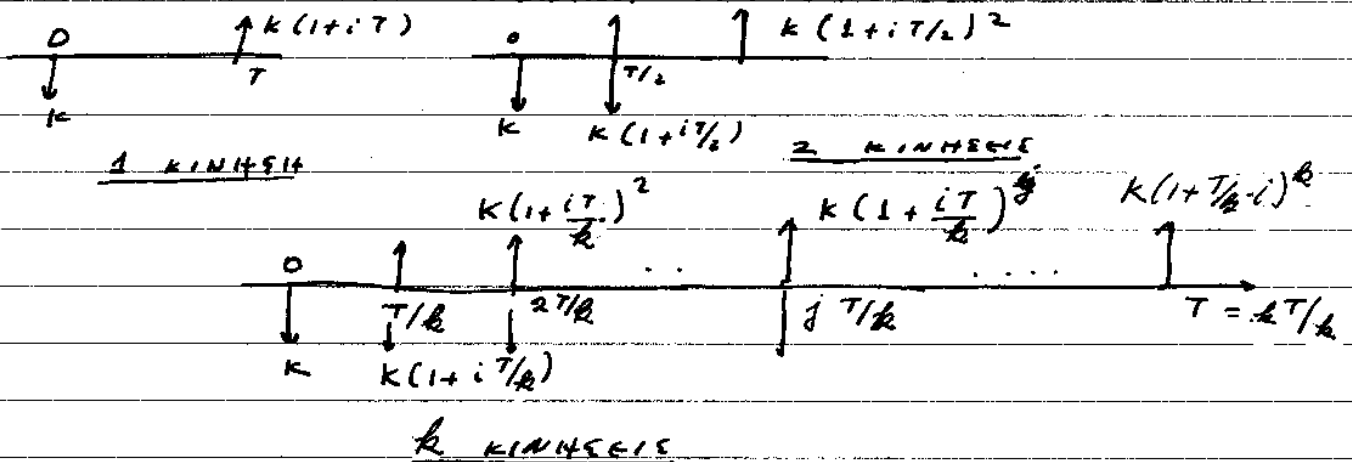 0 K(1+iT) 0 K(1+iT/2)²
T T/2
K K K(1+iT/2)
1 ΚΙΝΗΣΗ 2 ΚΙΝΗΣΕΙΣ
K(1+iT/k)² K(1+iT/k)^j K(1+T/k·i)^k
0 .. ....
T/k 2T/k j T/k T = kT/k
K K(1+iT/k)
k ΚΙΝΗΣΕΙΣ